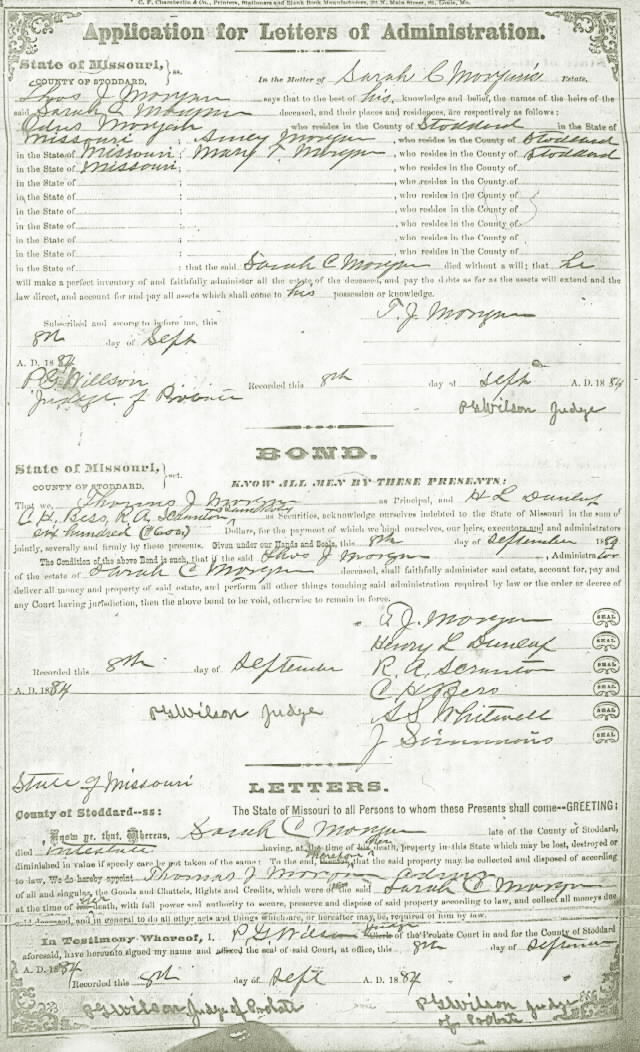 C. F. Chamberlin & Co., Printers, Stationers and Blank Book Manufacturers, N. Main Street, St. Louis, Mo.
Application for Letters of Administration.
State of Missouri, } ss.
COUNTY OF STODDARD,
In the Matter of Sarah C Morgan's Estate.
Thos J Morgan says that to the best of his knowledge and belief, the names of the heirs of the
said Sarah C Morgan deceased, and their places and residences, are respectively as follows:
Morgan who resides in County of Stoddard in the State of
Missouri ; Morgan , who resides in the County of Stoddard
in the State of Missouri ; Mary Morgan , who resides in the County of Stoddard
in the State of Missouri ; , who resides in the County of
in the State of ; , who resides in the County of
in the State of ; , who resides in the County of
in the State of ; , who resides in the County of
in the State of ; , who resides in the County of
in the State of ; , who resides in the County of
in the State of ; , who resides in the County of
in the State of ; that the said Sarah C Morgan died without a will; that he
will make a perfect inventory of and faithfully administer all the estate of the deceased, and pay the debts as far as the assets will extend and the
law direct, and account for and pay all assets which shall come to his possession or knowledge.
T. J. Morgan
Subscribed and sworn to before me, this
8th day of Sept
A. D. 1884
P G Willson
Judge of Probate
Recorded this 8th day of Sept A. D. 1884
P G Wilson Judge
BOND.
State of Missouri, } sct.
COUNTY OF STODDARD.
KNOW ALL MEN BY THESE PRESENTS:
That we, Thomas J Morgan as Principal, and H L Dunlap
C H, Bess, R. A. Scranton as Securities, acknowledge ourselves indebted to the State of Missouri in the sum of
six hundred (600) Dollars, for the payment of which we bind ourselves, our heirs, executors and administrators
jointly, severally and firmly by these presents. Given under our Hands and Seals, this 8th day of September 1884
The Condition of the above Bond is such, that if the said Thos J Morgan , Administrator
of the estate of Sarah C Morgan deceased, shall faithfully administer said estate, account for, pay and
deliver all money and property of said estate, and perform all other things touching said administration required by law or the order or decree of
any Court having jurisdiction, then the above bond to be void, otherwise to remain in force.
T J Morgan SEAL
Henry L Dunlap SEAL
Recorded this 8th day of September R. A. Scranton SEAL
A. D. 1884 C H Bess SEAL
P G Wilson Judge S S Whitwell SEAL
J Simmons SEAL
State of Missouri
LETTERS.
County of Stoddard--ss: The State of Missouri to all Persons to whom these Presents shall come--GREETING:
Know ye, that, Whereas, Sarah C Morgan late of the County of Stoddard,
died intestate having, at the time of his her death, property in this State which may be lost, destroyed or
diminished in value if speedy care be not taken of the same: To the end, therefore, that the said property may be collected and disposed of according
to law, We do hereby appoint Thomas J Morgan admr
of all and singular, the Goods and Chattels, Rights and Credits, which were of the said Sarah C Morgan
at the time of her death, with full power and authority to secure, preserve and dispose of said property according to law, and collect all moneys due
said deceased, and in general to do all other acts and things which are, or hereafter may be, required of him by law.
In Testimony Whereof, I, P. G. Wilson Judge Clerk of the Probate Court in and for the County of Stoddard
aforesaid, have hereunto signed my name and affixed the seal of said Court, at office, this 8th day of September
A. D. 1884
Recorded this 8th day of Sept A. D. 1884
P G Wilson Judge of Probate
P G Wilson Judge
of Probate